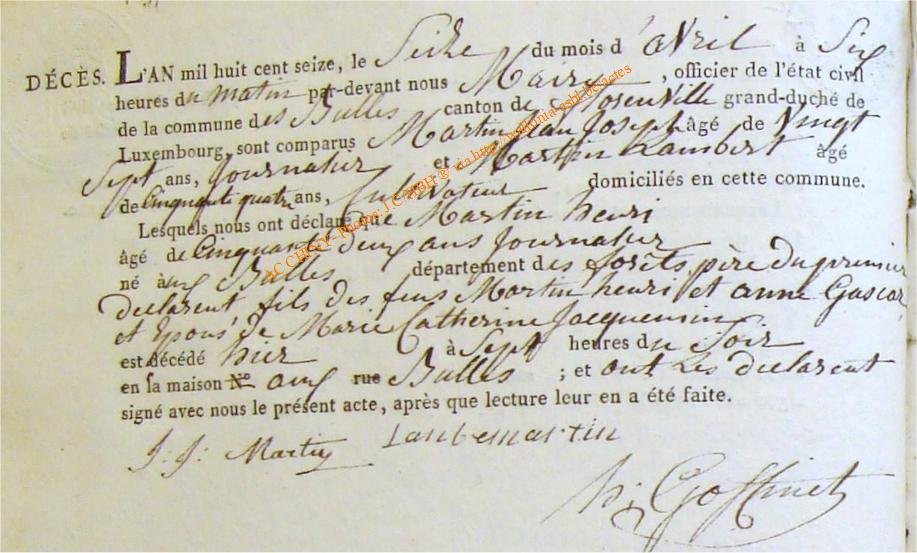 DÉCÈS. L'AN mil huit cent seize, le Seize du mois d'avril à Six
heures du matin par-devant nous Maire, officier de l'état civil
de la commune des Bulles canton de Rosenville grand-duché de
Luxembourg, sont comparus Martin Jean Joseph âgé de Vingt
Sept ans, Journalier et Martin Lambert âgé
de Cinquante quatre ans, Cultivateur domiciliés en cette commune.
Lesquels nous ont déclaré que Martin henri
âgé de Cinquante deux ans Journalier
né aux Bulles département des forêts père du premier
declarent fils des feus Martin henri et anne Gascar
et Epous de Marie Catherine Jacquemin
est décédé hier à Sept heures du Soir
en sa maison N° aux rue Bulles ; et ont Les declarent
signé avec nous le présent acte, après que lecture leur en a été faite.
J. J. Martin Lanbemartin
h. Goffinet